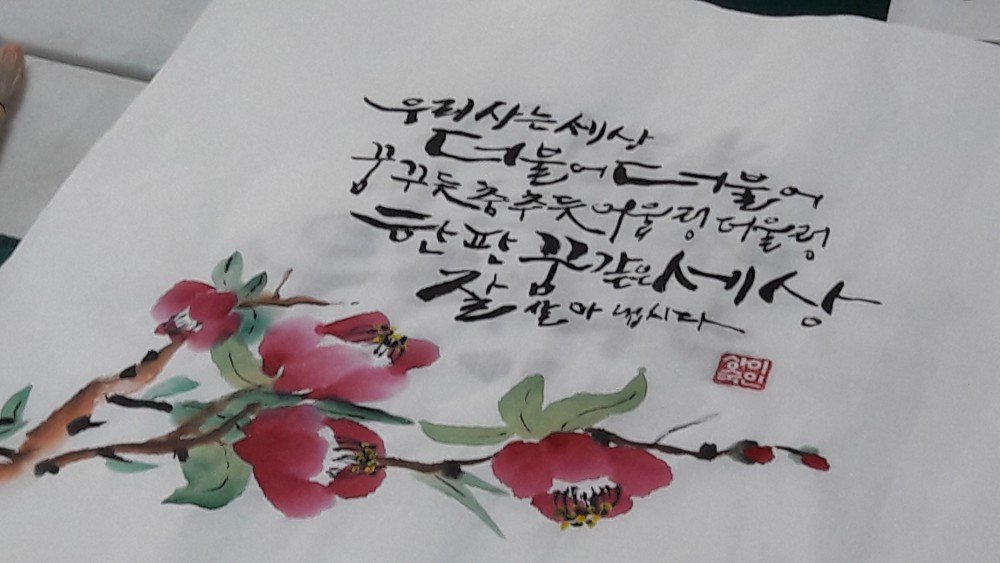 우리 사는 세상
더불어 더불어
꿈꾸듯 춤추듯 어울렁 더울렁
한판 꿈같은 세상
잘 살아 냅시다